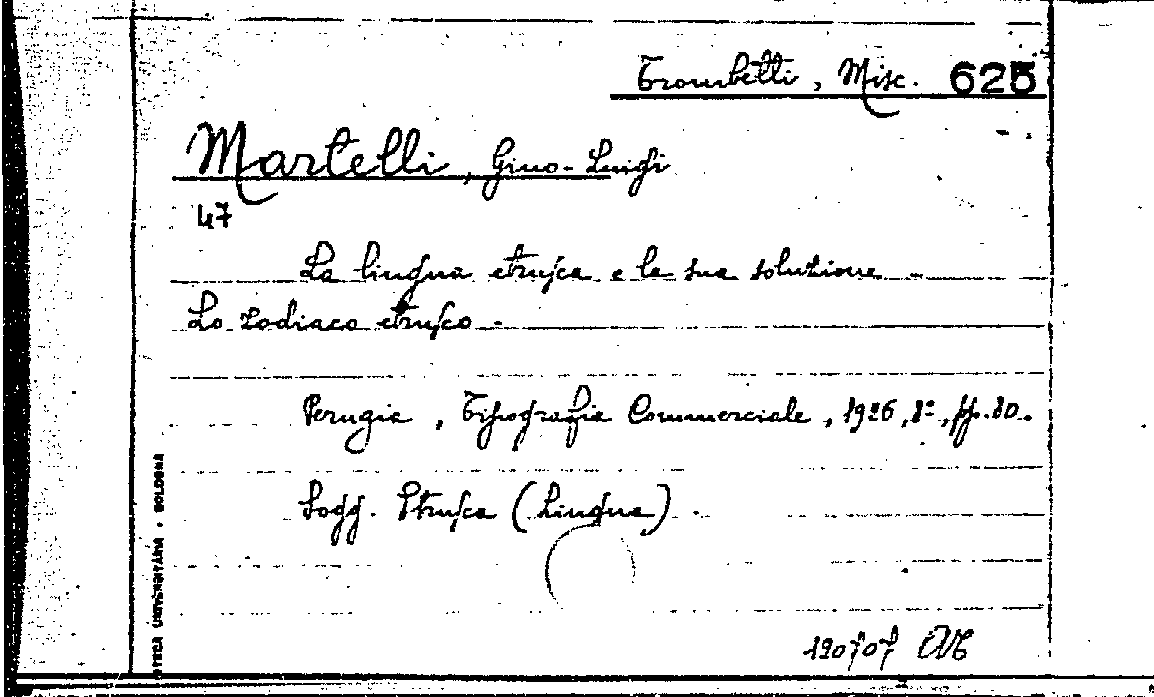 Trombetti, Misc. 625
Martelli, Gino-Luigi
47
La lingua etrusca e la sua soluzione -
Lo zodiaco etrusco -
Perugia, Tipografia Commerciale, 1926, 8°, pp. 80.
Sogg. Etrusca (Lingua).
UNIVERSITARIA - BOLOGNA